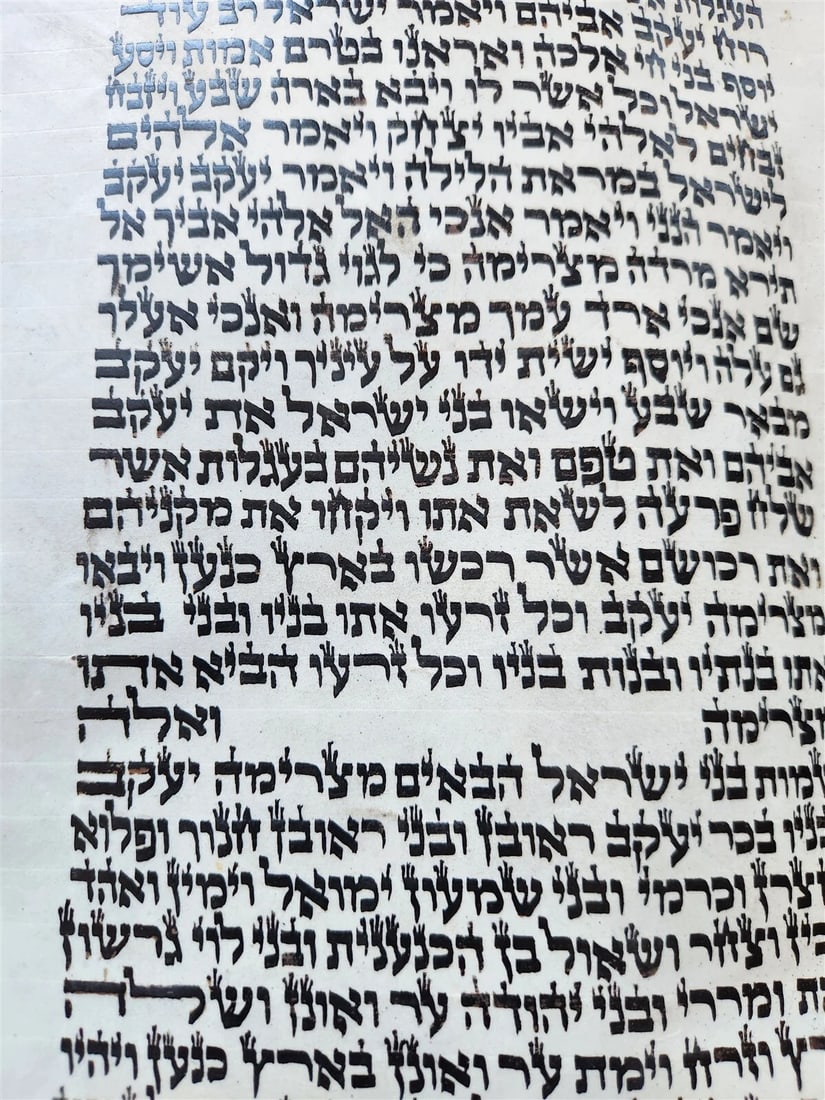 העגלות
רוח יעקב אביהם ויאמר ישראל רב עוד
יוסף בני חי אלכה ואראנו בטרם אמות ויסע
ישראל וכל אשר לו ויבא בארה שבע ויזבח
זבחים לאלהי אביו יצחק ויאמר אלהים
לישראל במראת הלילה ויאמר יעקב יעקב
ויאמר הנני ויאמר אנכי האל אלהי אביך אל
תירא מרדה מצרימה כי לגוי גדול אשימך
שם אנכי ארד עמך מצרימה ואנכי אעלך
גם עלה ויוסף ישית ידו על עיניך ויקם יעקב
מבאר שבע וישאו בני ישראל את יעקב
אביהם ואת טפם ואת נשיהם בעגלות אשר
שלח פרעה לשאת אתו ויקחו את מקניהם
ואת רכושם אשר רכשו בארץ כנען ויבאו
מצרימה יעקב וכל זרעו אתו בניו ובני בניו
אתו בנתיו ובנות בניו וכל זרעו הביא אתו
מצרימה ואלה
שמות בני ישראל הבאים מצרימה יעקב
בניו בכר יעקב ראובן ובני ראובן חנוך ופלוא
חצרן וכרמי ובני שמעון ימואל וימין ואהד
כין וצחר ושאול בן הכנענית ובני לוי גרשון
ת ומררי ובני יהודה ער ואונן ושלה
רץ וזרח וימת ער ואונן בארץ כנען ויהיו